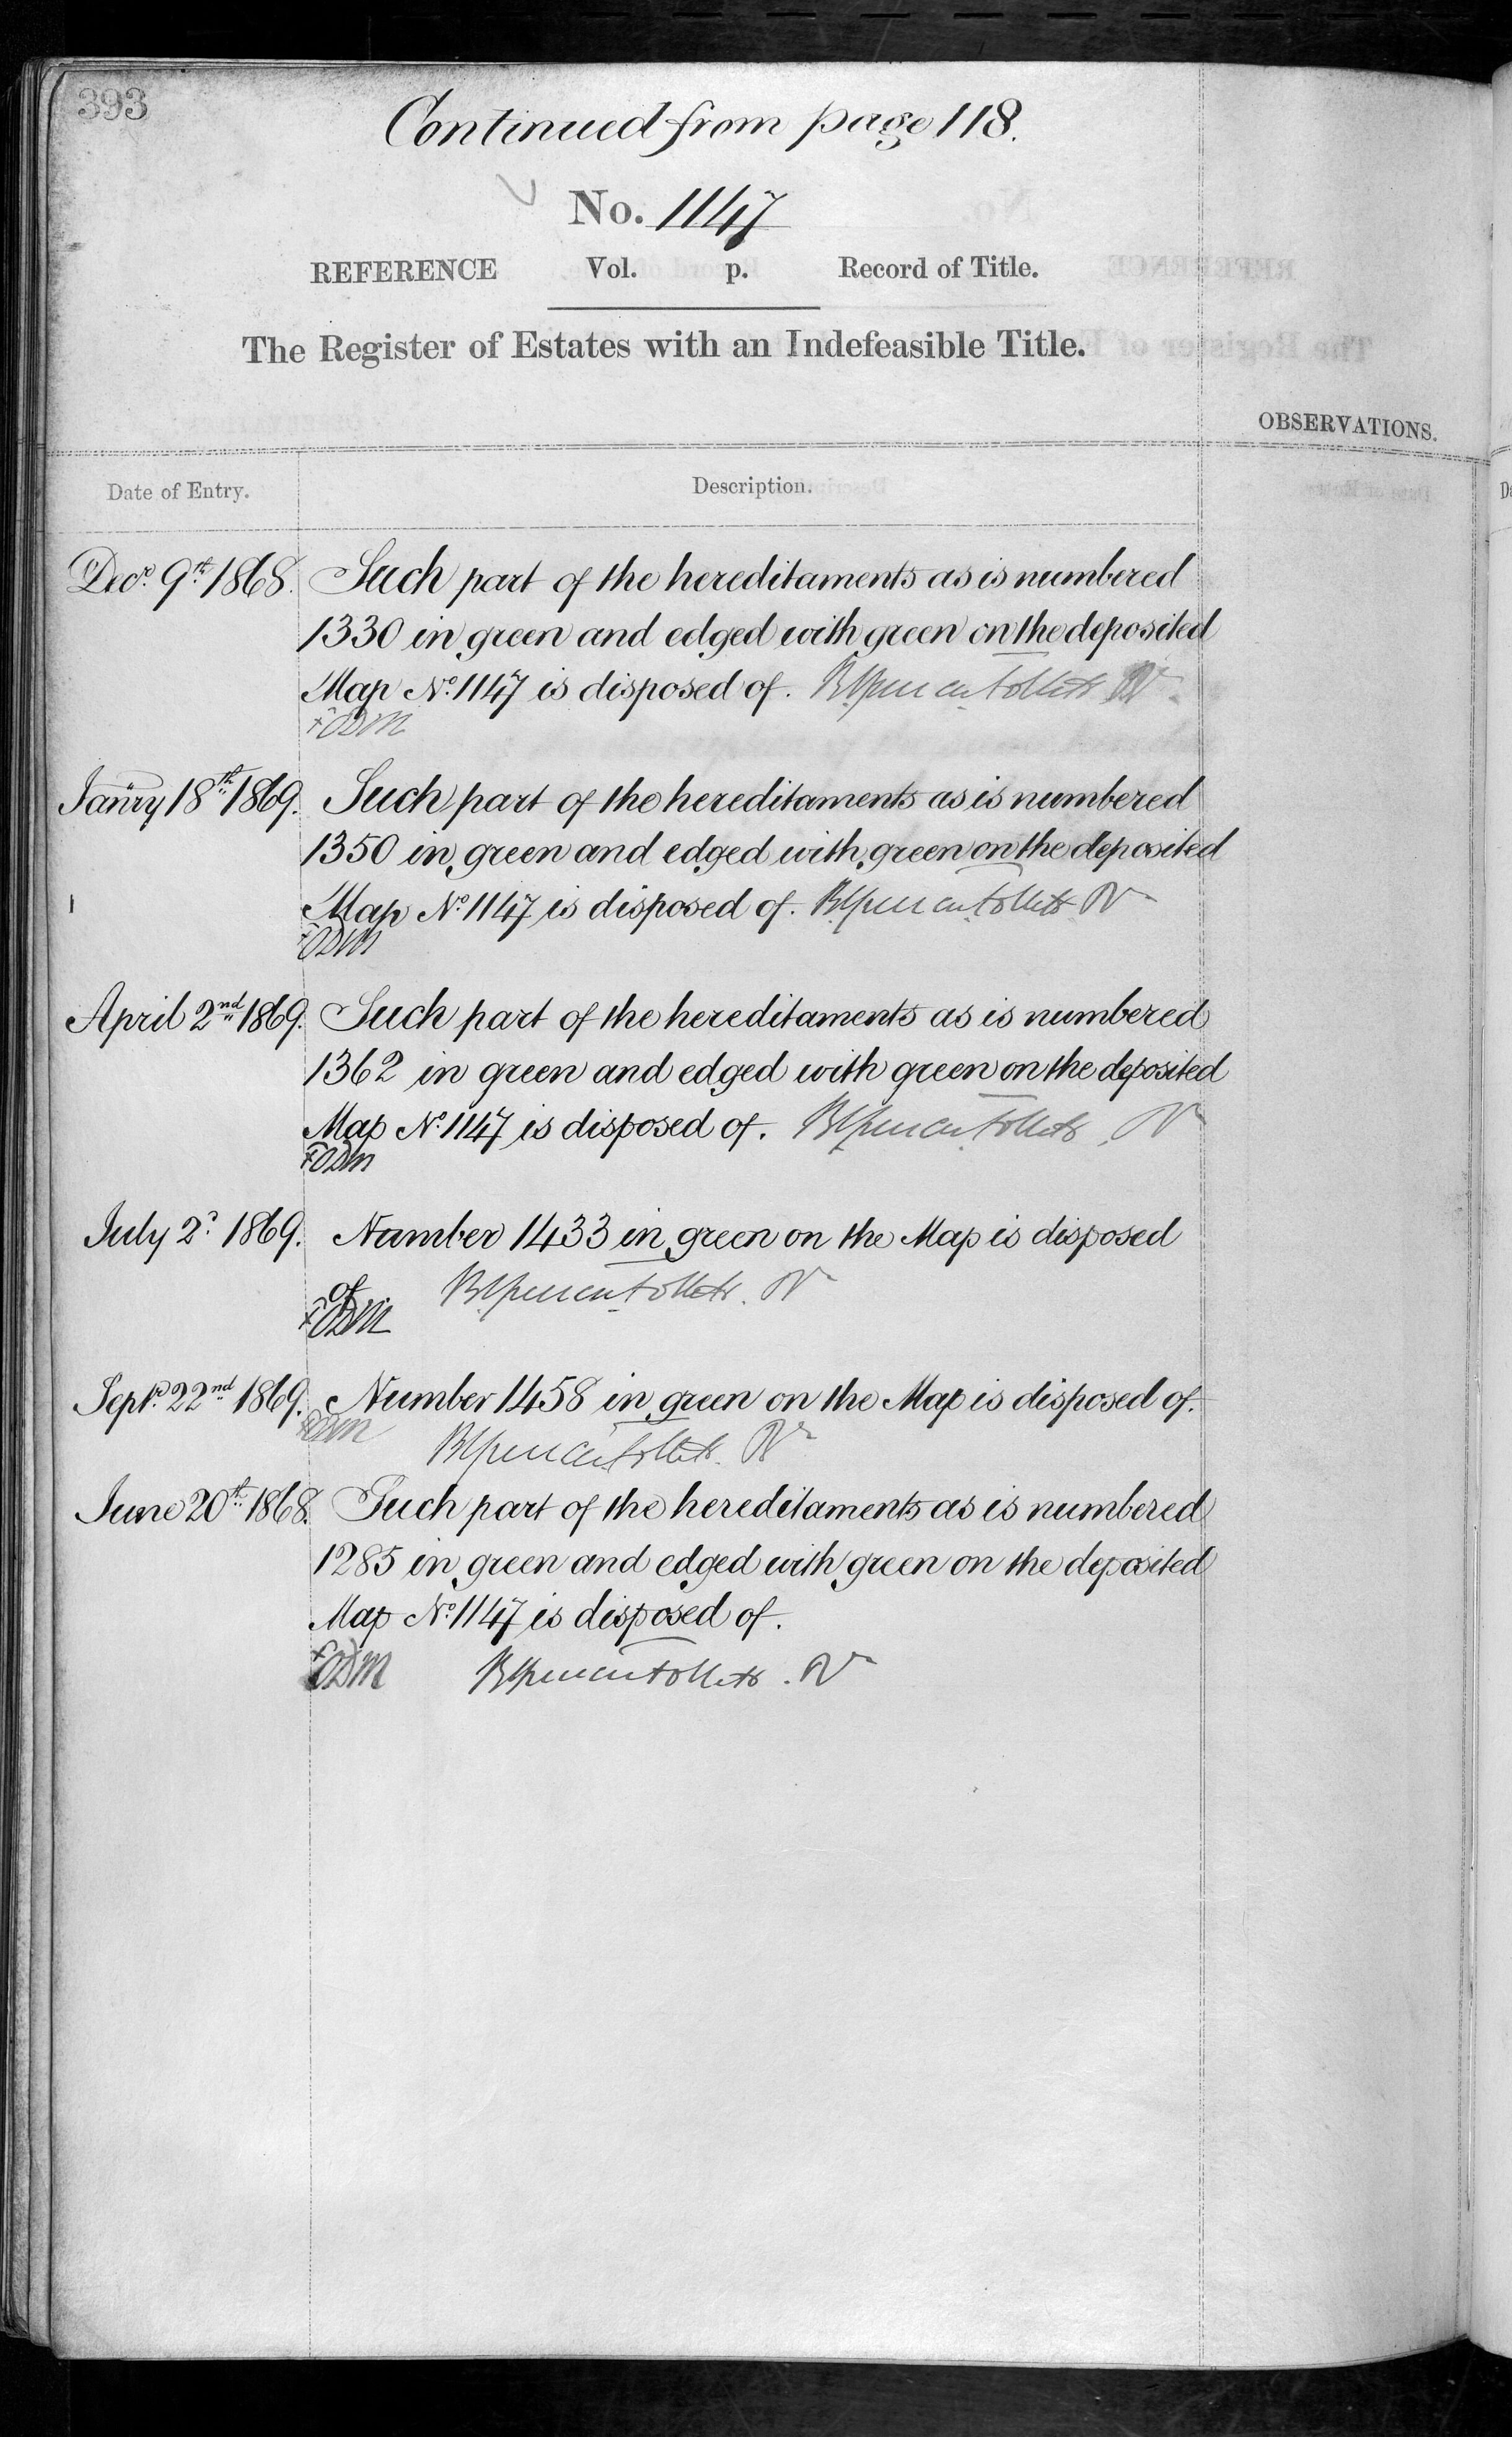 393
Continued from page 118.
No. 1147
REFERENCE Vol. p. Record of Title.
The Register of Estates with an Indefeasible Title.
OBSERVATIONS.
Date of Entry. Description.
Decr. 9th 1868. Such part of the hereditaments as is numbered
1330 in green and edged with green on the deposited
Map No. 1147 is disposed of.
Janry 18th 1869. Such part of the hereditaments as is numbered
1350 in green and edged with green on the deposited
Map No. 1147 is disposed of.
April 2nd 1869. Such part of the hereditaments as is numbered
1362 in green and edged with green on the deposited
Map No. 1147 is disposed of.
July 2d 1869. Number 1433 in green on the Map is disposed
of
Septr. 22nd 1869. Number 1458 in green on the Map is disposed of.
June 20th 1868. Such part of the hereditaments as is numbered
1285 in green and edged with green on the deposited
Map No. 1147 is disposed of.